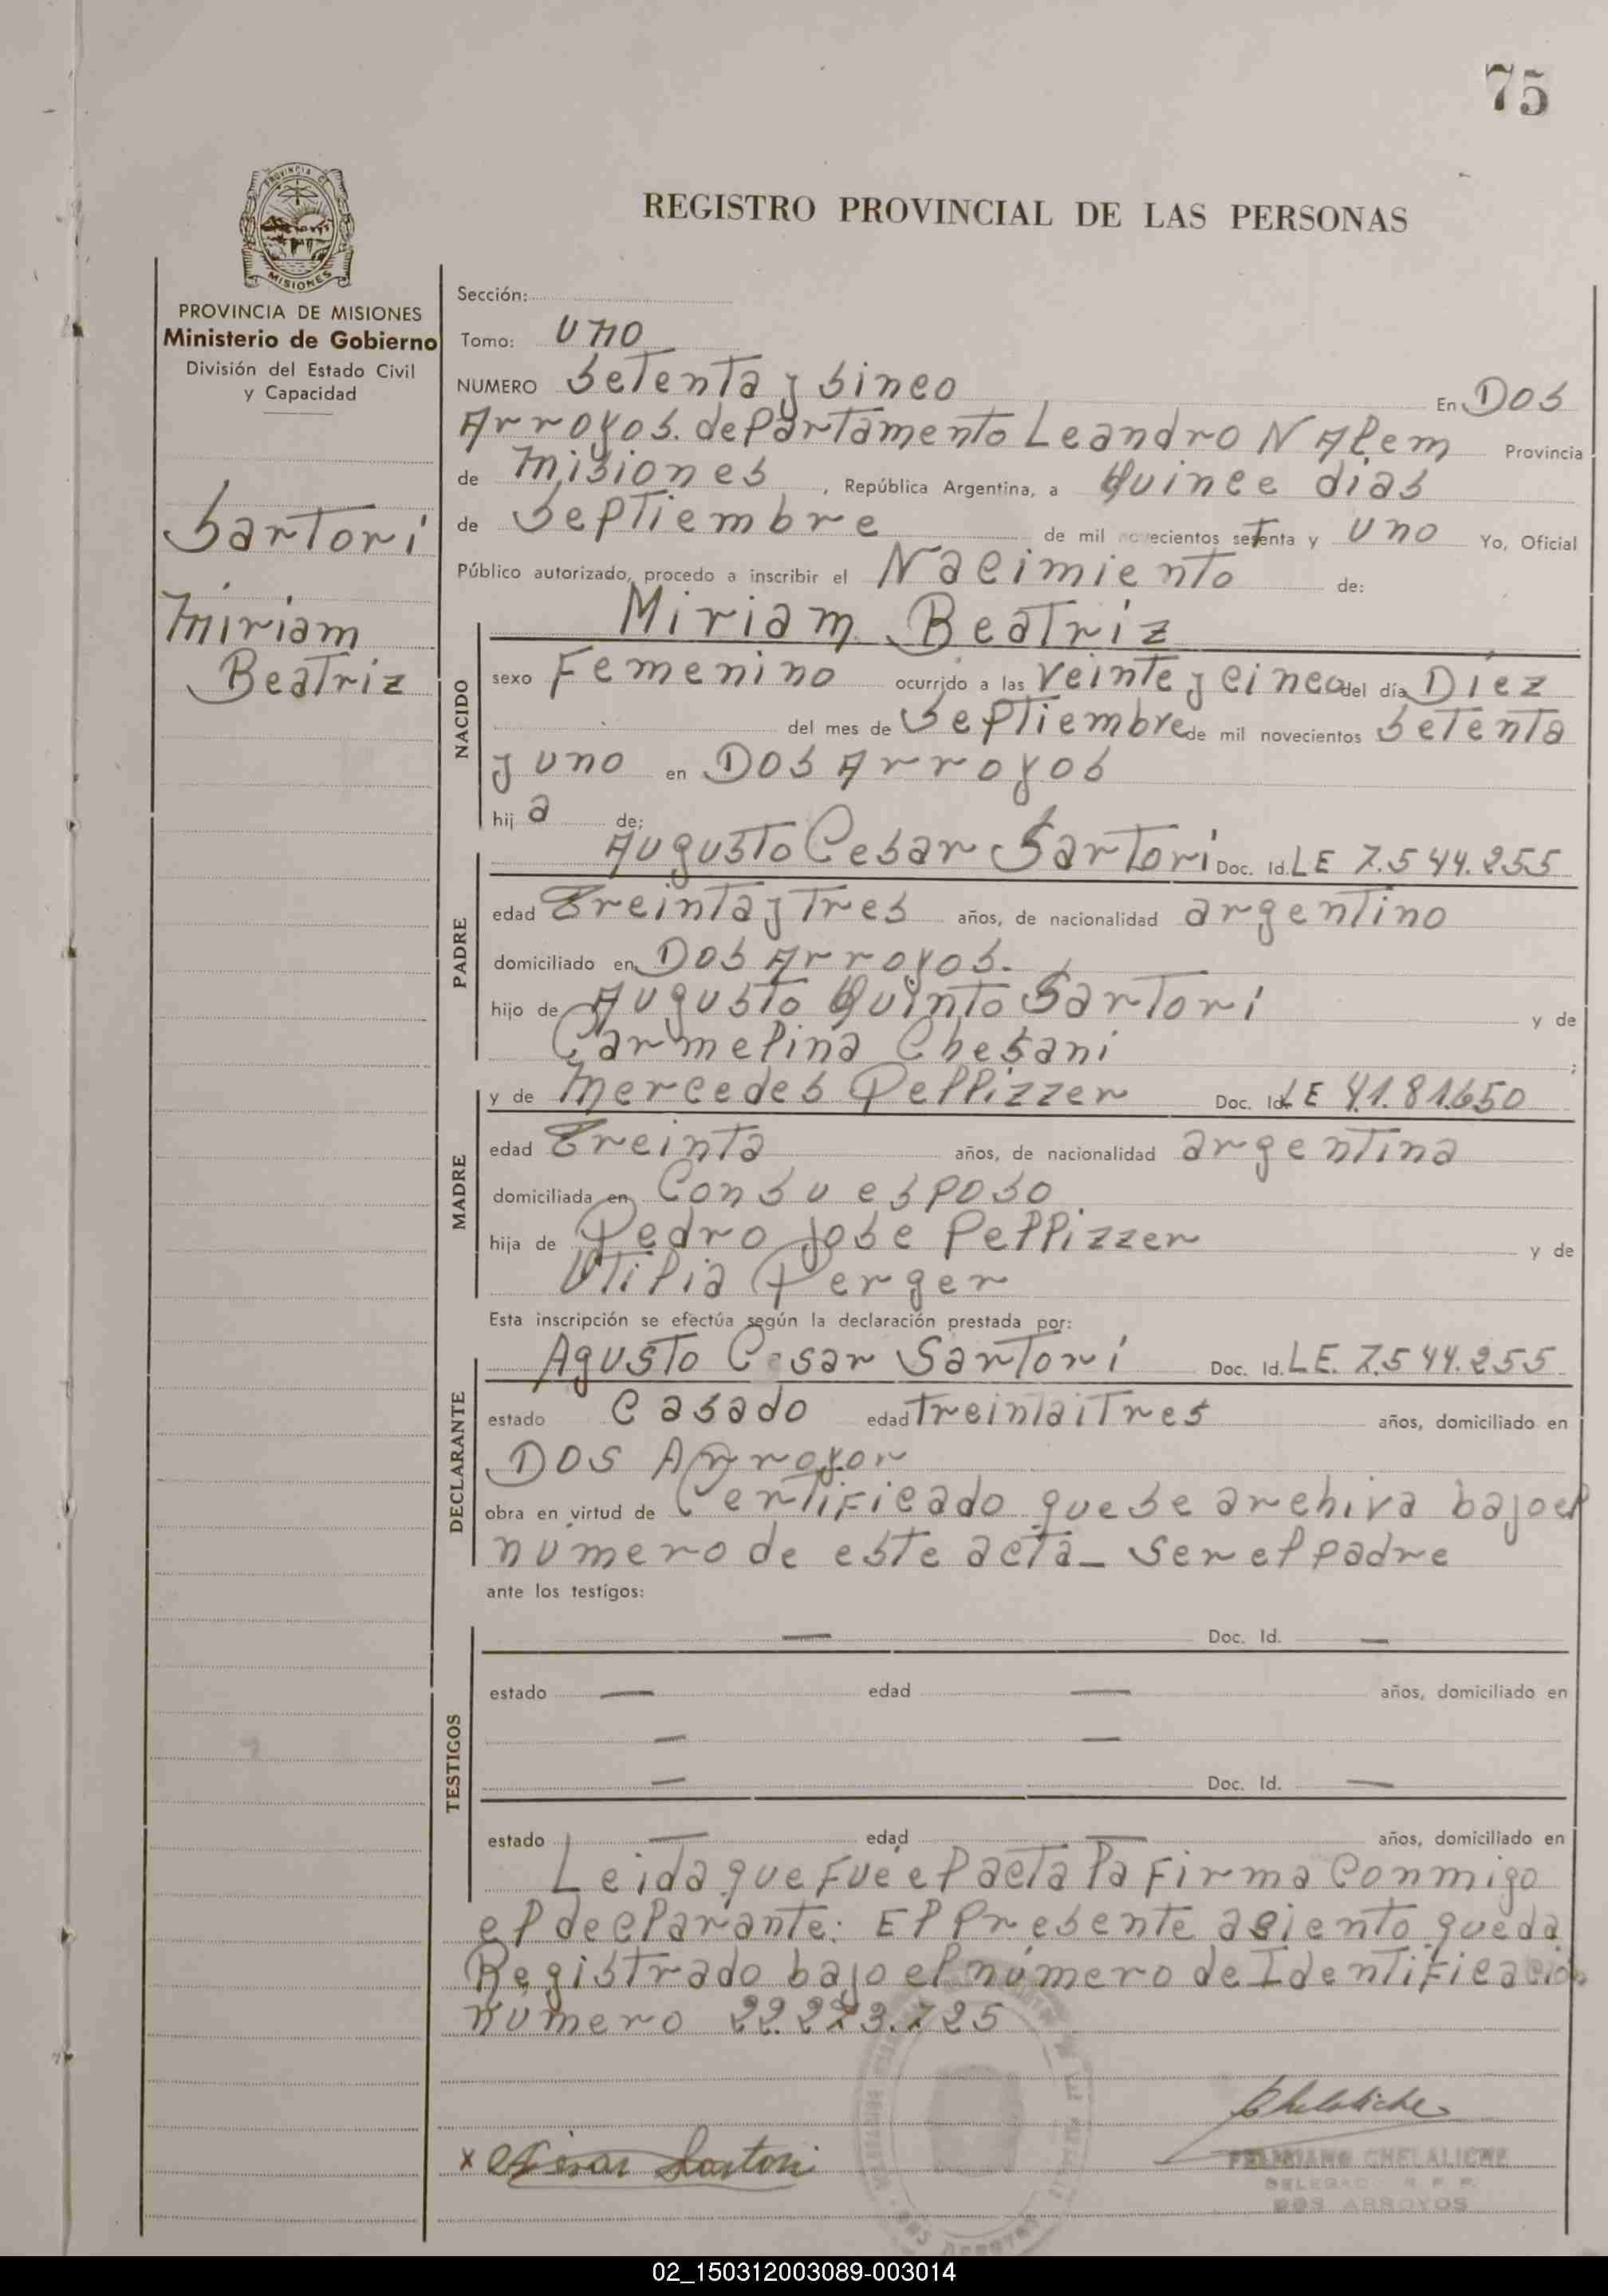 75
PROVINCIA DE MISIONES
REGISTRO PROVINCIAL DE LAS PERSONAS
PROVINCIA DE MISIONES
Ministerio de Gobierno
División del Estado Civil
y Capacidad
Sartori
Miriam
Beatriz
Sección:
Tomo: uno
NUMERO Setenta y Sinco En Dos
Arroyos. departamento Leandro N Alem Provincia
de Misiones, República Argentina, a Quince dias
de Septiembre de mil novecientos setenta y uno Yo, Oficial
Público autorizado, procedo a inscribir el Nacimiento de:
Miriam Beatriz
NACIDO
sexo Femenino ocurrido a las Veinte y cinco del día Díez
del mes de Septiembre de mil novecientos Setenta
y uno en Dos Arroyos
hija de:
PADRE
Augusto Cesar Sartori Doc. Id. LE 7.544.255
edad Treinta y Tres años, de nacionalidad argentino
domiciliado en Dos Arroyos.
hijo de Augusto Quinto Sartori y de
Carmelina Chesani;
MADRE
y de Mercedes Pellizzer Doc. Id. LE
edad Treinta años, de nacionalidad argentina
domiciliada en Con su esposo
hija de Pedro Jose Pellizzer y de
Utilia Perger
Esta inscripción se efectúa según la declaración prestada por:
DECLARANTE
Agusto Cesar Sartori Doc. Id. LE. 7.544.255
estado Casado edad treintaitres años, domiciliado en
DOS
obra en virtud de Certificado que se archiva bajo el
número de este acta_ Ser el padre
ante los testigos:
TESTIGOS
— Doc. Id. —
estado — edad — años, domiciliado en
— —
— Doc. Id. —
estado — edad — años, domiciliado en
Leida que fué el acta la firma conmigo
el declarante: El Presente asiento queda
Registrado bajo el número de Identificación
número
x Cesar Sartori
FELICIANO CHELALICHE
DELEGADO R. P. P.
DOS ARROYOS
02_150312003089-003014